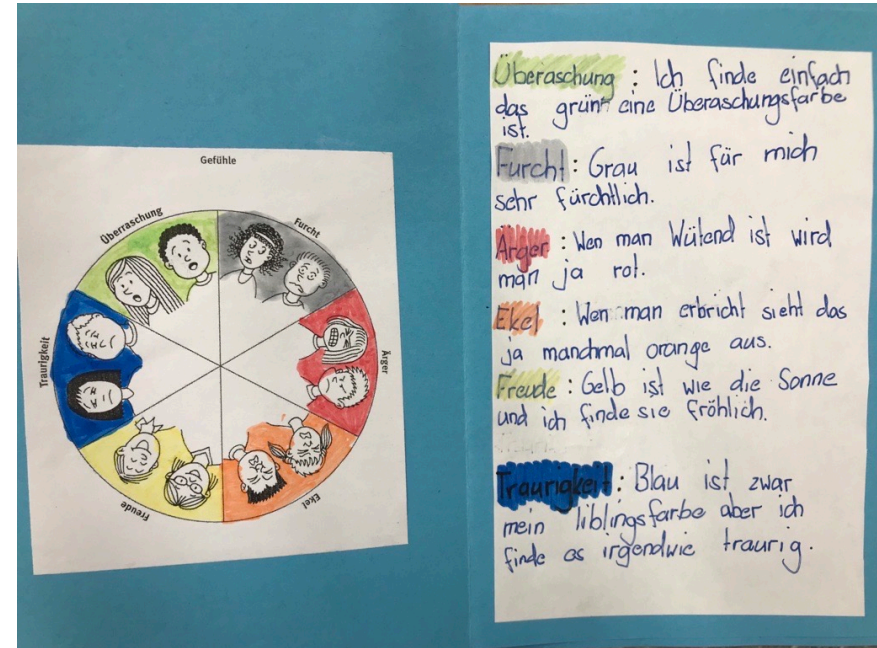 Gefühle
Überraschung
Furcht
Ärger
Ekel
Freude
Traurigkeit
Überaschung : Ich finde einfach
das grün eine Überaschungsfarbe
ist.
Furcht : Grau ist für mich
sehr fürchtlich.
Ärger : Wen man Wütend ist wird
man ja rot.
Ekel : Wen man erbricht sieht das
ja manchmal orange aus.
Freude : Gelb ist wie die Sonne
und ich finde sie fröhlich.
Traurigkeit : Blau ist zwar
mein liblingsfarbe aber ich
finde es irgendwie traurig.